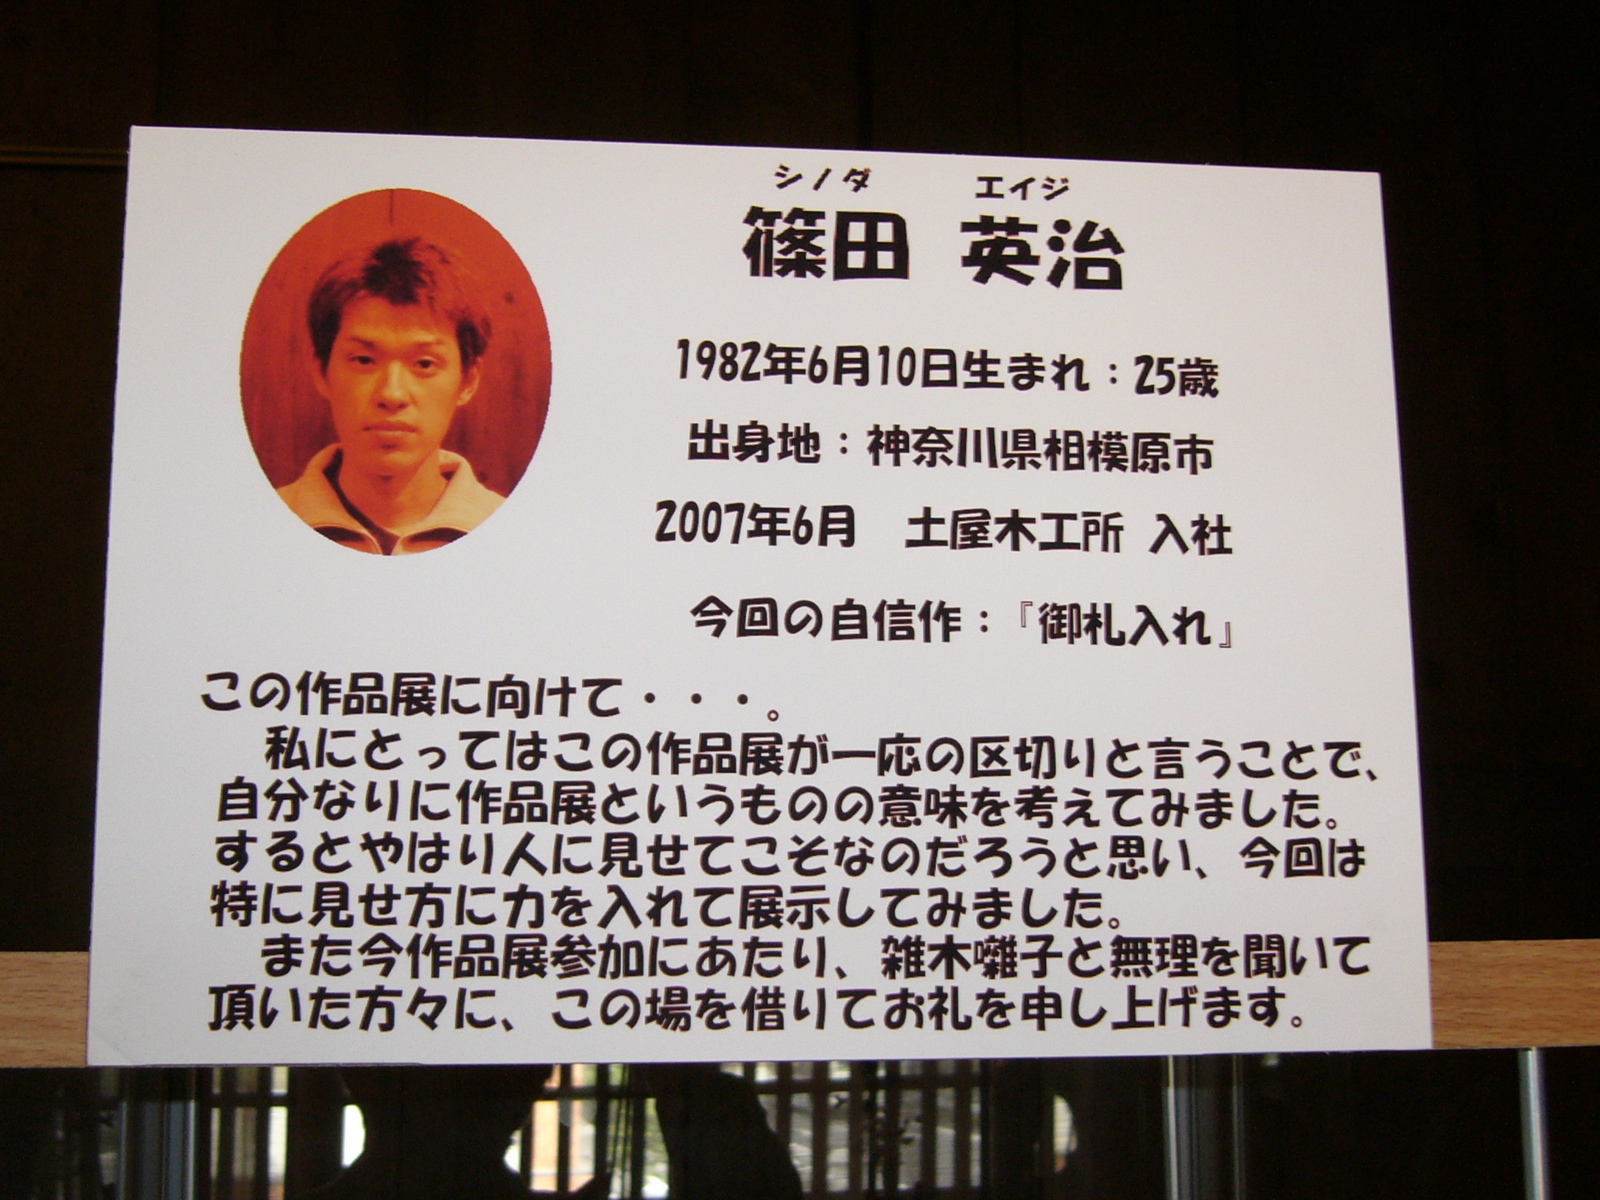 シノダ エイジ
篠田 英治
1982年6月10日生まれ：25歳
出身地：神奈川県相模原市
2007年6月 土屋木工所 入社
今回の自信作：『御札入れ』
この作品展に向けて・・・。
私にとってはこの作品展が一応の区切りと言うことで、
自分なりに作品展というものの意味を考えてみました。
するとやはり人に見せてこそなのだろうと思い、今回は
特に見せ方に力を入れて展示してみました。
また今作品展参加にあたり、雑木囃子と無理を聞いて
頂いた方々に、この場を借りてお礼を申し上げます。